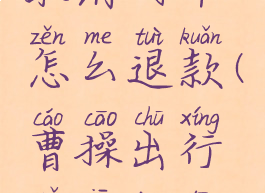 zěn me tuì kuǎn
怎么退款(
cáo cāo chū xíng
曹操出行